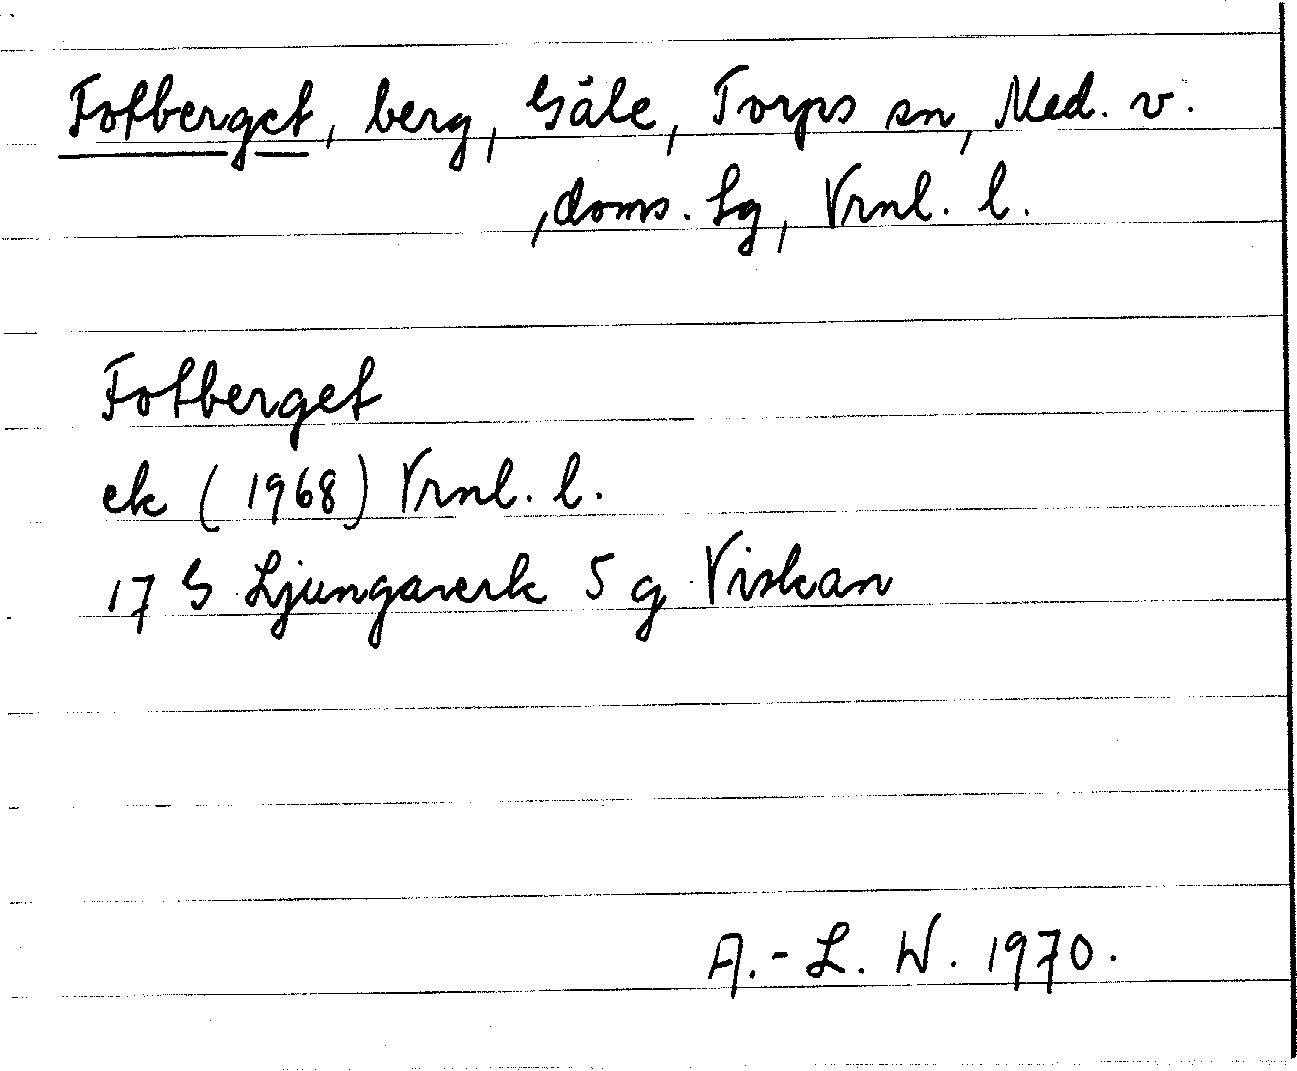 Fotberget, berg, Gåle, Torps sn, Med. v.
,doms. Lg, Vrnl. l.
Fotberget
ek (1968) Vrnl. l.
17 G Ljungaverk 5 g Viskan
A.-L. W. 1970.